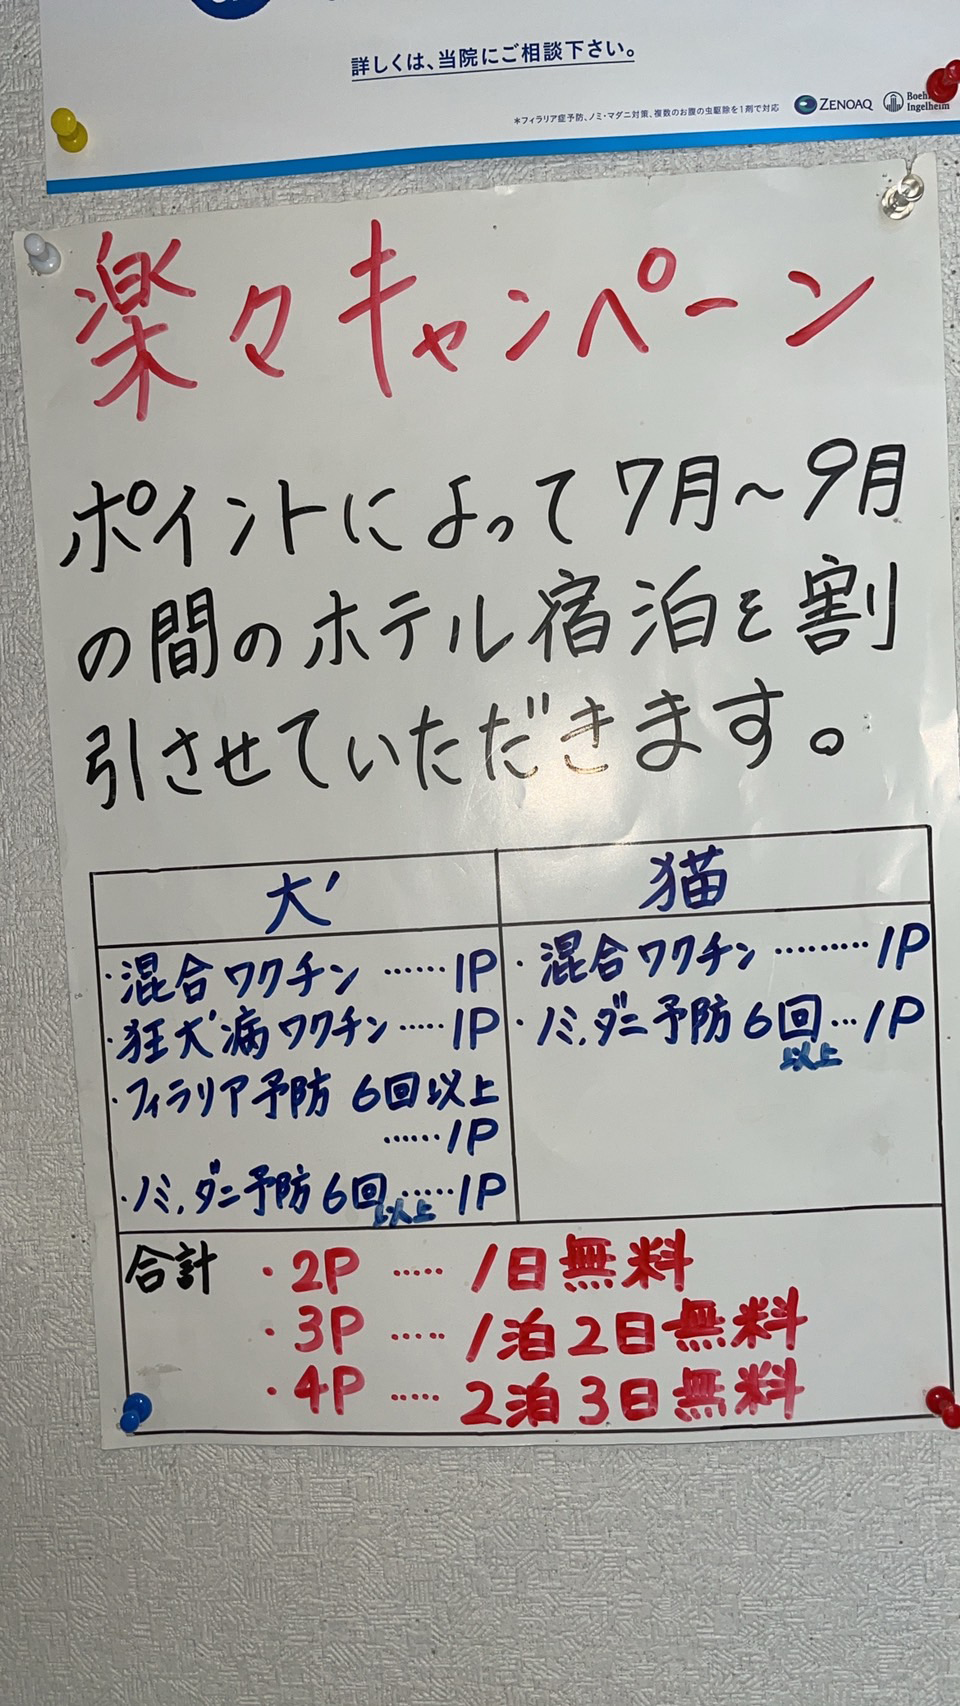 詳しくは、当院にご相談下さい。
*フィラリア症予防、ノミ・マダニ対策、複数のお腹の虫駆除を1剤で対応
ZENOAQ
Ingelheim
楽々キャンペーン
ポイントによって7月～9月
の間のホテル宿泊を割
引させていただきます。
犬
猫
・混合ワクチン ……1P
・狂犬病ワクチン……1P
・フィラリア予防 6回以上
……1P
・ノミ、ダニ予防6回以上……1P
・混合ワクチン………1P
・ノミ、ダニ予防6回以上…1P
合計
・2P …… 1日無料
・3P …… 1泊2日無料
・4P …… 2泊3日無料